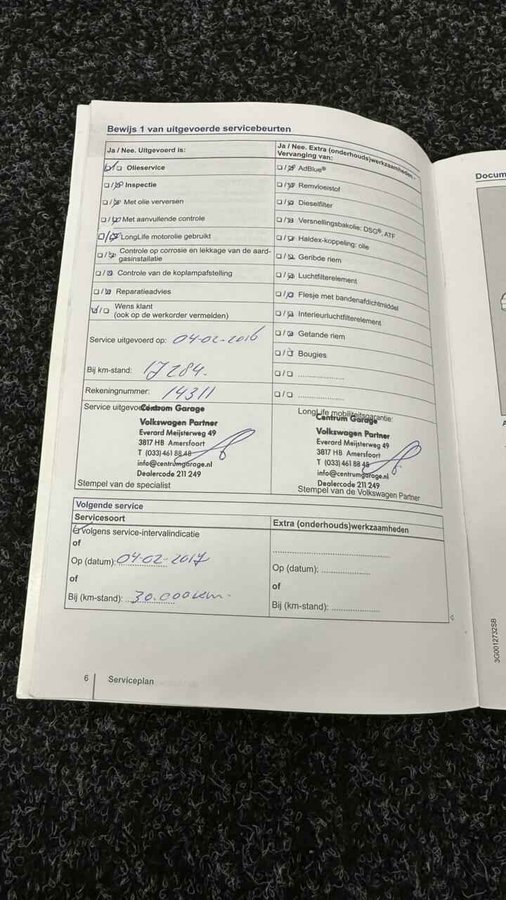 Bewijs 1 van uitgevoerde servicebeurten
Ja / Nee. Uitgevoerd is:
Olieservice
Inspectie
Met olie verversen
Met aanvullende controle
LongLife motorolie gebruikt
Controle op corrosie en lekkage van de aard-
gasinstallatie
Controle van de koplampafstelling
Reparatieadvies
Wens klant
(ook op de werkorder vermelden)
Service uitgevoerd op: 04-02-2016
Bij km-stand: 17284.
Rekeningnummer: 14311
Service uitgevoerd
Centrum Garage
Volkswagen Partner
Everard Meijsterweg 49
3817 HB Amersfoort
T (033) 461 88 48
info@centrumgarage.nl
Dealercode 211 249
Stempel van de specialist
Ja / Nee. Extra (onderhouds)werkzaamheden -
Vervanging van:
AdBlue®
Remvloeistof
Dieselfilter
Versnellingsbakolie: DSG®, ATF
Haldex-koppeling: olie
Geribde riem
Luchtfilterelement
Flesje met bandenafdichtmiddel
Interieurluchtfilterelement
Getande riem
Bougies
LongLife mobiliteitsgarantie:
Centrum Garage
Volkswagen Partner
Everard Meijsterweg 49
3817 HB Amersfoort
T (033) 461 88 48
info@centrumgarage.nl
Dealercode 211 249
Stempel van de Volkswagen Partner
Volgende service
Servicesoort
volgens service-intervalindicatie
of
Op (datum): 04-02-2017
of
Bij (km-stand): 30.000 km.
Extra (onderhouds)werkzaamheden
Op (datum):
of
Bij (km-stand):
6 Serviceplan
3G0012732SB
Docum